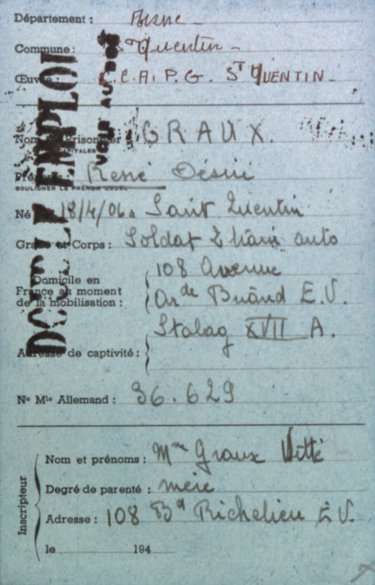 Département : Aisne -
Commune : St Quentin -
Œuv C.C.A.P.G. ST QUENTIN -
Nom prisonnier GRAUX.
CAPITALES
Pré René Désiré
SOULIGNER LE PRÉNOM USUEL
Né 18/4/06 à Saint Quentin
Gra et Corps : Soldat train auto
Domicile en
France au moment
de la mobilisation :
108 Avenue
Ar de Briand E.V.
Adresse de captivité :
Stalag XVII A.
No Mle Allemand : 36.629
Inscripteur
Nom et prénoms : Mme Graux
Degré de parenté : mère
Adresse : 108 Bd Richelieu E.V.
le 194
DOUBLE EMPLOI
VOUS AU